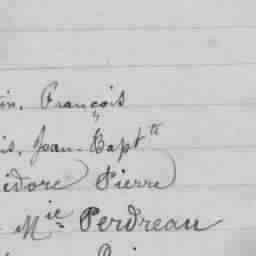 in. François
is. Jean-Bapt^te
idore Pierre
M^ie Perdreau